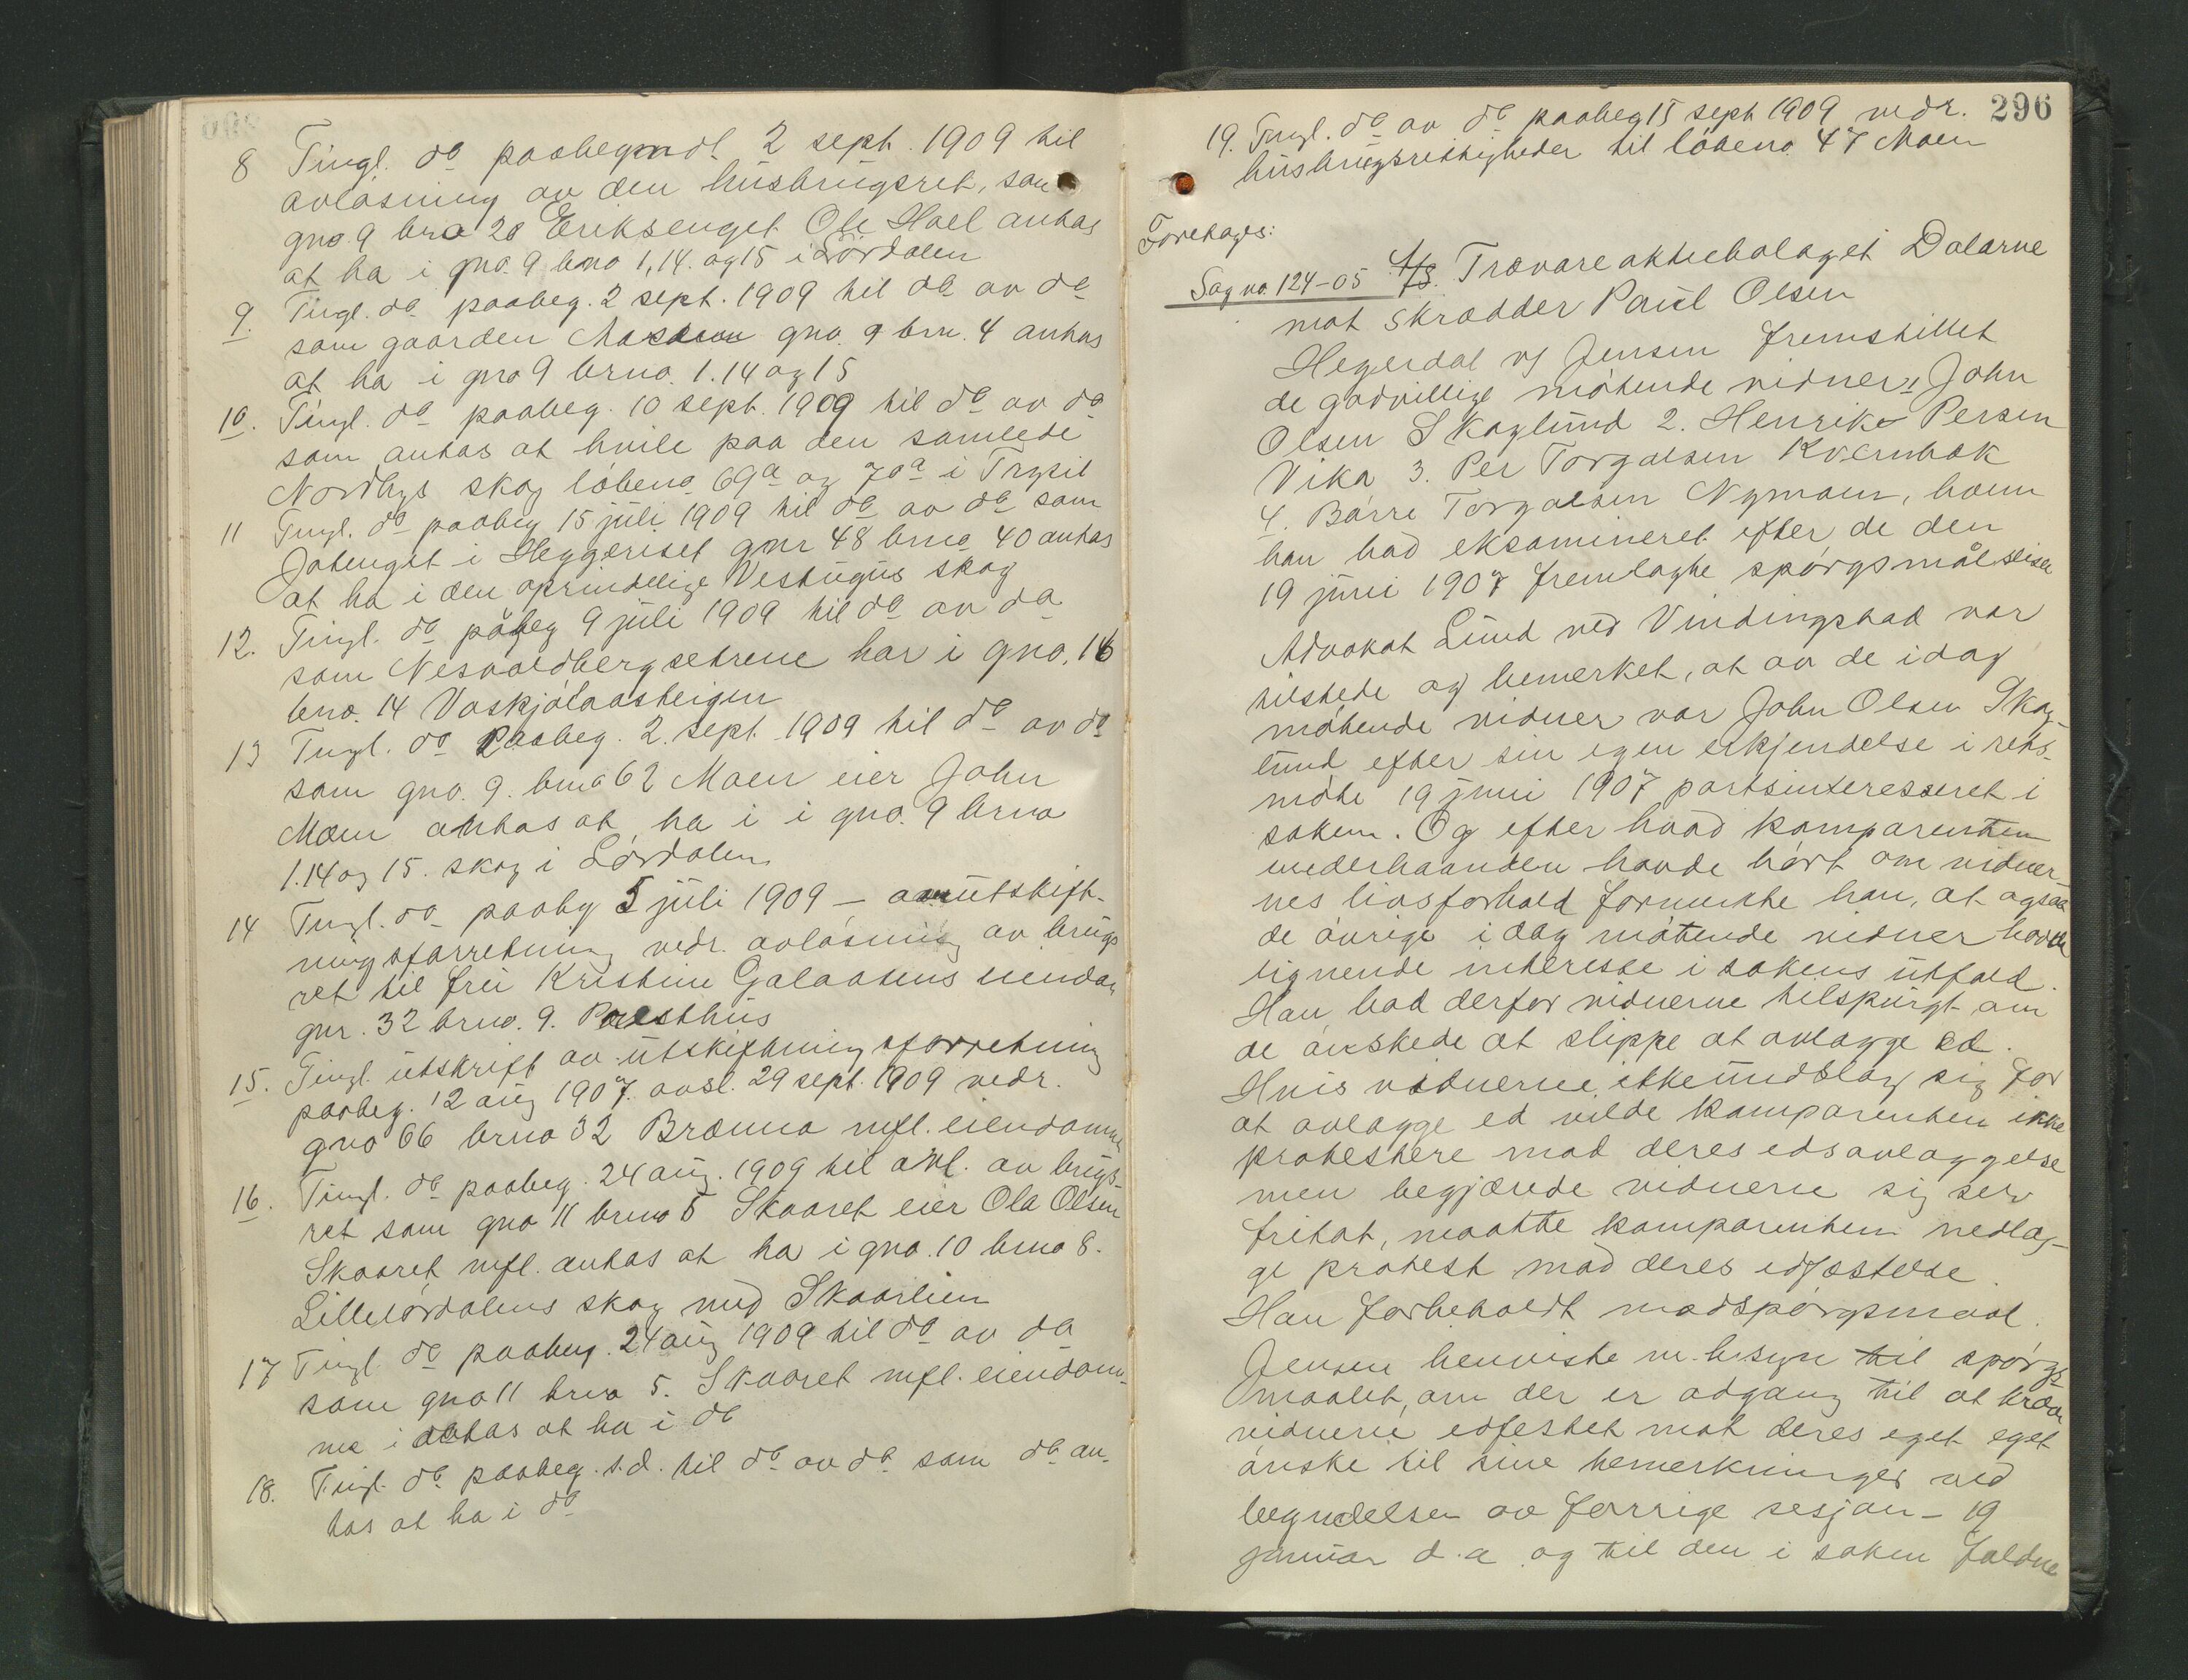 8 Tingl. do paabegyndt 2 sept. 1909 til
avløsning av den husbrugsret, som
gno. 9 brno 20 Eriksenget Ole Hoel antas
at ha i gno. 9 brno 1,14. og 15 i Lørdalen
9. Tingl. do paabeg. 2 sept. 1909 til do av do
som gaarden gno. 9 brn. 4 antas
at ha i gno 9 brno. 1.14 og 15
10. Tingl. do paabeg. 10 sept. 1909 til do av do
som antas at hvile paa den samlede
Nordbys skog løbeno 69a og 70a i Trysil
11 Tingl. do paabeg 15 juli 1909 til do av do som
Jotenget i Heggeriset gnr 48 brno 40 antas
at ha i den oprindelige Vestugus skog
12. Tingl. do påbeg 9 juli 1909 til do av do
som Nesvoldbergsetrene har i gno. 16
brno. 14 Vaskjølaasteigen
13 Tingl. do Paabeg. 2. sept. 1909 til do av do
som gno. 9. brno 62 Moen eier John
Moen antas at ha i i gno. 9 brno
1.14 og 15. skog i Lørdalen
14 Tingl. do paabg 5 juli 1909 – utskift-
ningsforretning vedr. avløsning av brugs
ret til fru Kristine Galaasens eiendom
gnr. 32 brno. 9. Præsthus
15. Tingl. utskrift av utskiftningsforretning
paabeg. 12 aug 1907. avsl. 29 sept. 1909 vedr.
gno 66 brno 32 Brænna mfl. eiendomme
16. Tingl. do paabeg. 24 aug. 1909 til avl. av brugs-
ret som gno 11 brno 5 Skaaret eier Ola Olsen
Skaaret mfl. antas at ha i gno. 10 brno 8.
Lillelørdalens skog med Skaarlien
17 Tingl do paabeg. 24 aug 1909 til do av do
som gno 11 brno 5. Skaaret mfl. eiendom-
me i antas at ha i do
18. Tingl. do paabeg. s.d. til do av do som do an-
tas at ha i do
296
19. Tingl. do av do paabeg 15 sept 1909 vedr.
husbrugsrettigheder til løbeno. 47 Moen
Foretages:
Sag no. 124-05 A/S. Trævareaktiebolaget Dalarne
mot skrædder Paul Olsen
Hegerdal v/ Jensen fremstillet
de godvillige møtende vidner: 1 John
Olsen Skoglund 2. Henrik Persen
Vika 3. Per Torgalsen Kvernbæk
4. Børre Torgalsen Nymoen, hvem
han bad eksamineret efter de den
19 juni 1907 fremlagte spørgsmålsliste
Advokat Lund ved Vindingstad var
tilstede og bemerket, at av de idag
møtende vidner var John Olsen Skog-
lund efter sin egen erkjendelse i rets-
møte 19 juni 1907 partsinteresseret i
saken. Og efter hvad komparenten
underhaanden havde hørt om vidner
nes livsforhold formente han, at ogsaa
de øvrige idag møtende vidner hadde
lignende interesse i sakens utfald.
Han bad derfor vidnerne tilspurgt om
de ønskede at slippe at avlægge ed.
Hvis vidnerne ikke undslog sig for
at avlægge ed vilde komparenten ikke
protestere mod deres edsavlæggelse
men begjærede vidnerne sig selv
fritat, maatte komparenten nedlæg-
ge protest mod deres edfæstelse.
Han forbeholdt modspørgsmaal.
Jensen henviste m. hsyn til spørgs
maalet, om der er adgang til at kræve
vidnerne edfestet mot deres eget eget
ønske til sine bemerkninger ved
begyndelsen av forrige sesjon – 19
januar d.a. og til den i saken faldne